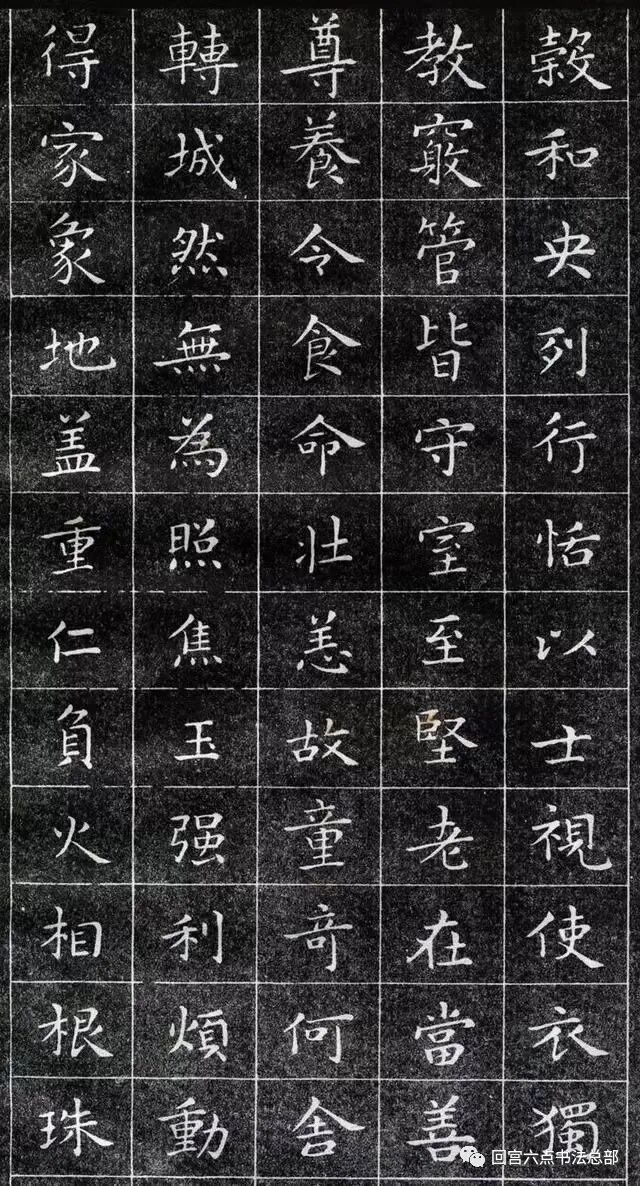 榖和央列行恬以士視使衣獨
教窮管皆守室至堅老在當善
尊養令食命壯恙故童奇何舍
轉城然無為照焦玉强利煩動
得家象地盖重仁負火相根珠
回宫六点书法总部